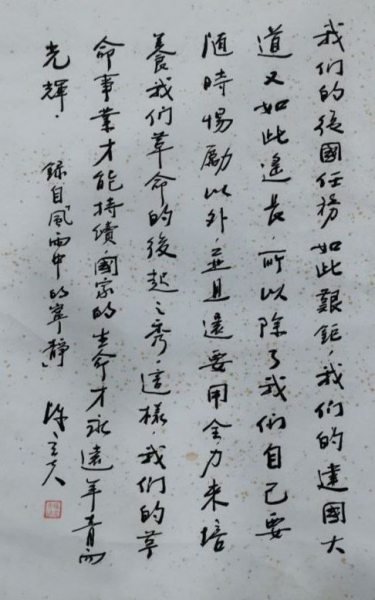 我们的復國任務如此艱鉅，我们的建國大
道又如此遙長，所以除了我们自己要
随時惕勵以外，並且還要用全力来培
養我们革命的後起之秀，這樣，我们的革
命事業才能持續，國家的生命才永遠年青而
光輝。
錄自風雨中的寧靜